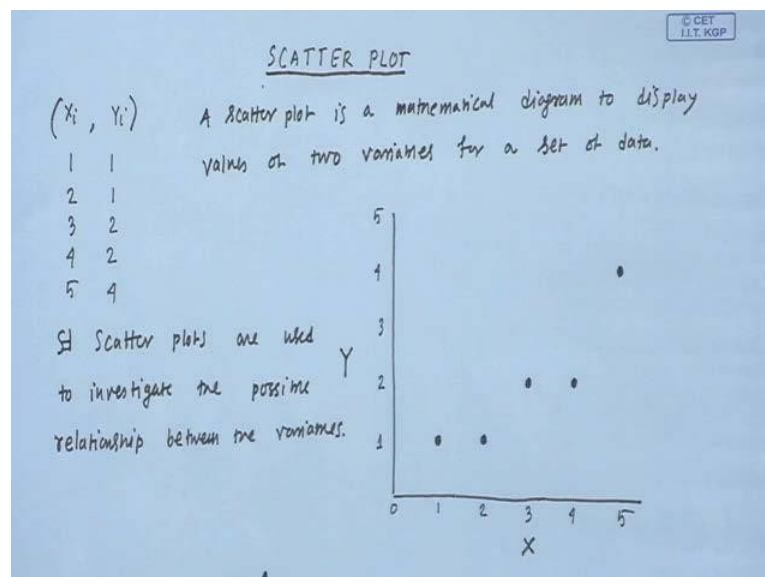 © CET
I.I.T. KGP
SCATTER PLOT
(Xi , Yi)
1 1
2 1
3 2
4 2
5 4
A scatter plot is a mathematical diagram to display
values of two variables for a set of data.
Scatter plots are used
to investigate the possible
relationship between the variables.
5
4
3
2
1
Y
0 1 2 3 4 5
X